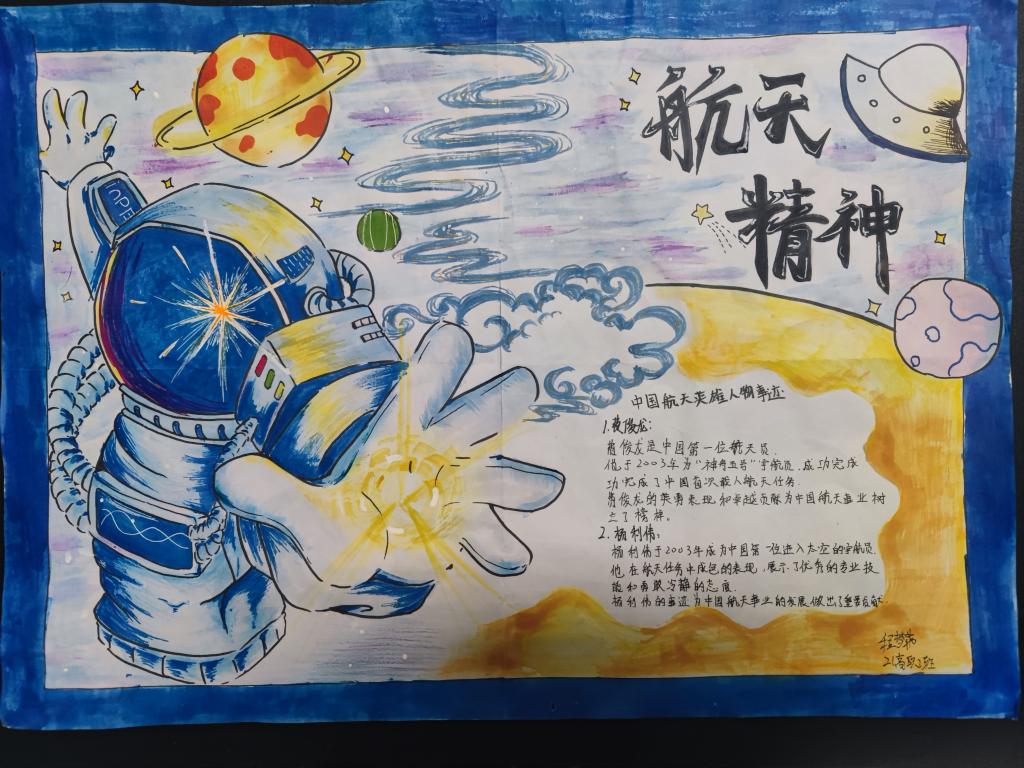 航天
精神
中国航天英雄人物事迹
1.费俊龙:
费俊龙是中国第一位航天员.
他于2003年为“神舟五号”宇航员.成功完成
功完成了中国首次载人航天任务.
费俊龙的英勇表现和卓越贡献为中国航天事业树
立了榜样。
2.杨利伟:
杨利伟于2003年成为中国第一位进入太空的宇航员.
他在航天任务中成色的表现,展示了优秀的专业技
能和勇敢冷静的态度.
杨利伟的事迹为中国航天事业的发展做出了重要贡献.
21高职2班